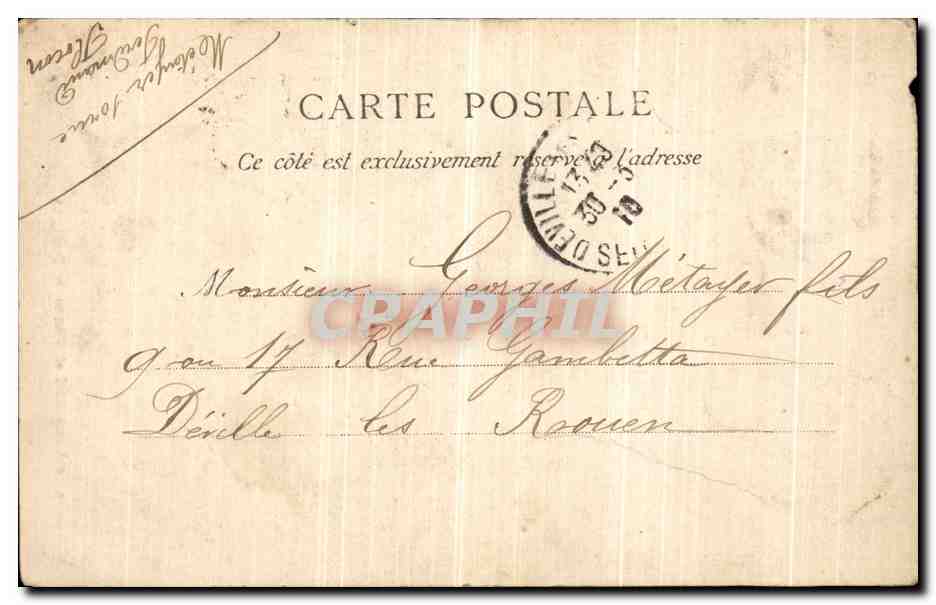 Métayer
Ferdinand
CARTE POSTALE
Ce côté est exclusivement réservé à l'adresse
DEVILLE
13 40
30 -3
10
Monsieur Georges Métayer fils
9 ou 17 Rue Gambetta
Déville les Rouen
CPAPHIL